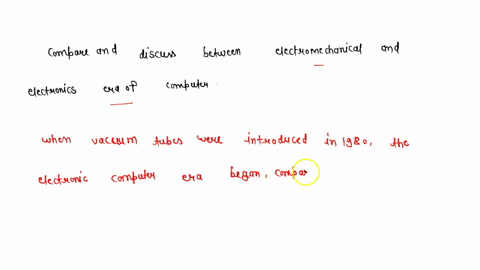 compare and discuss between electromechanical and
electronics era of computer.
when vacuum tubes were introduced in 1980, the
electronic computer era began, compar